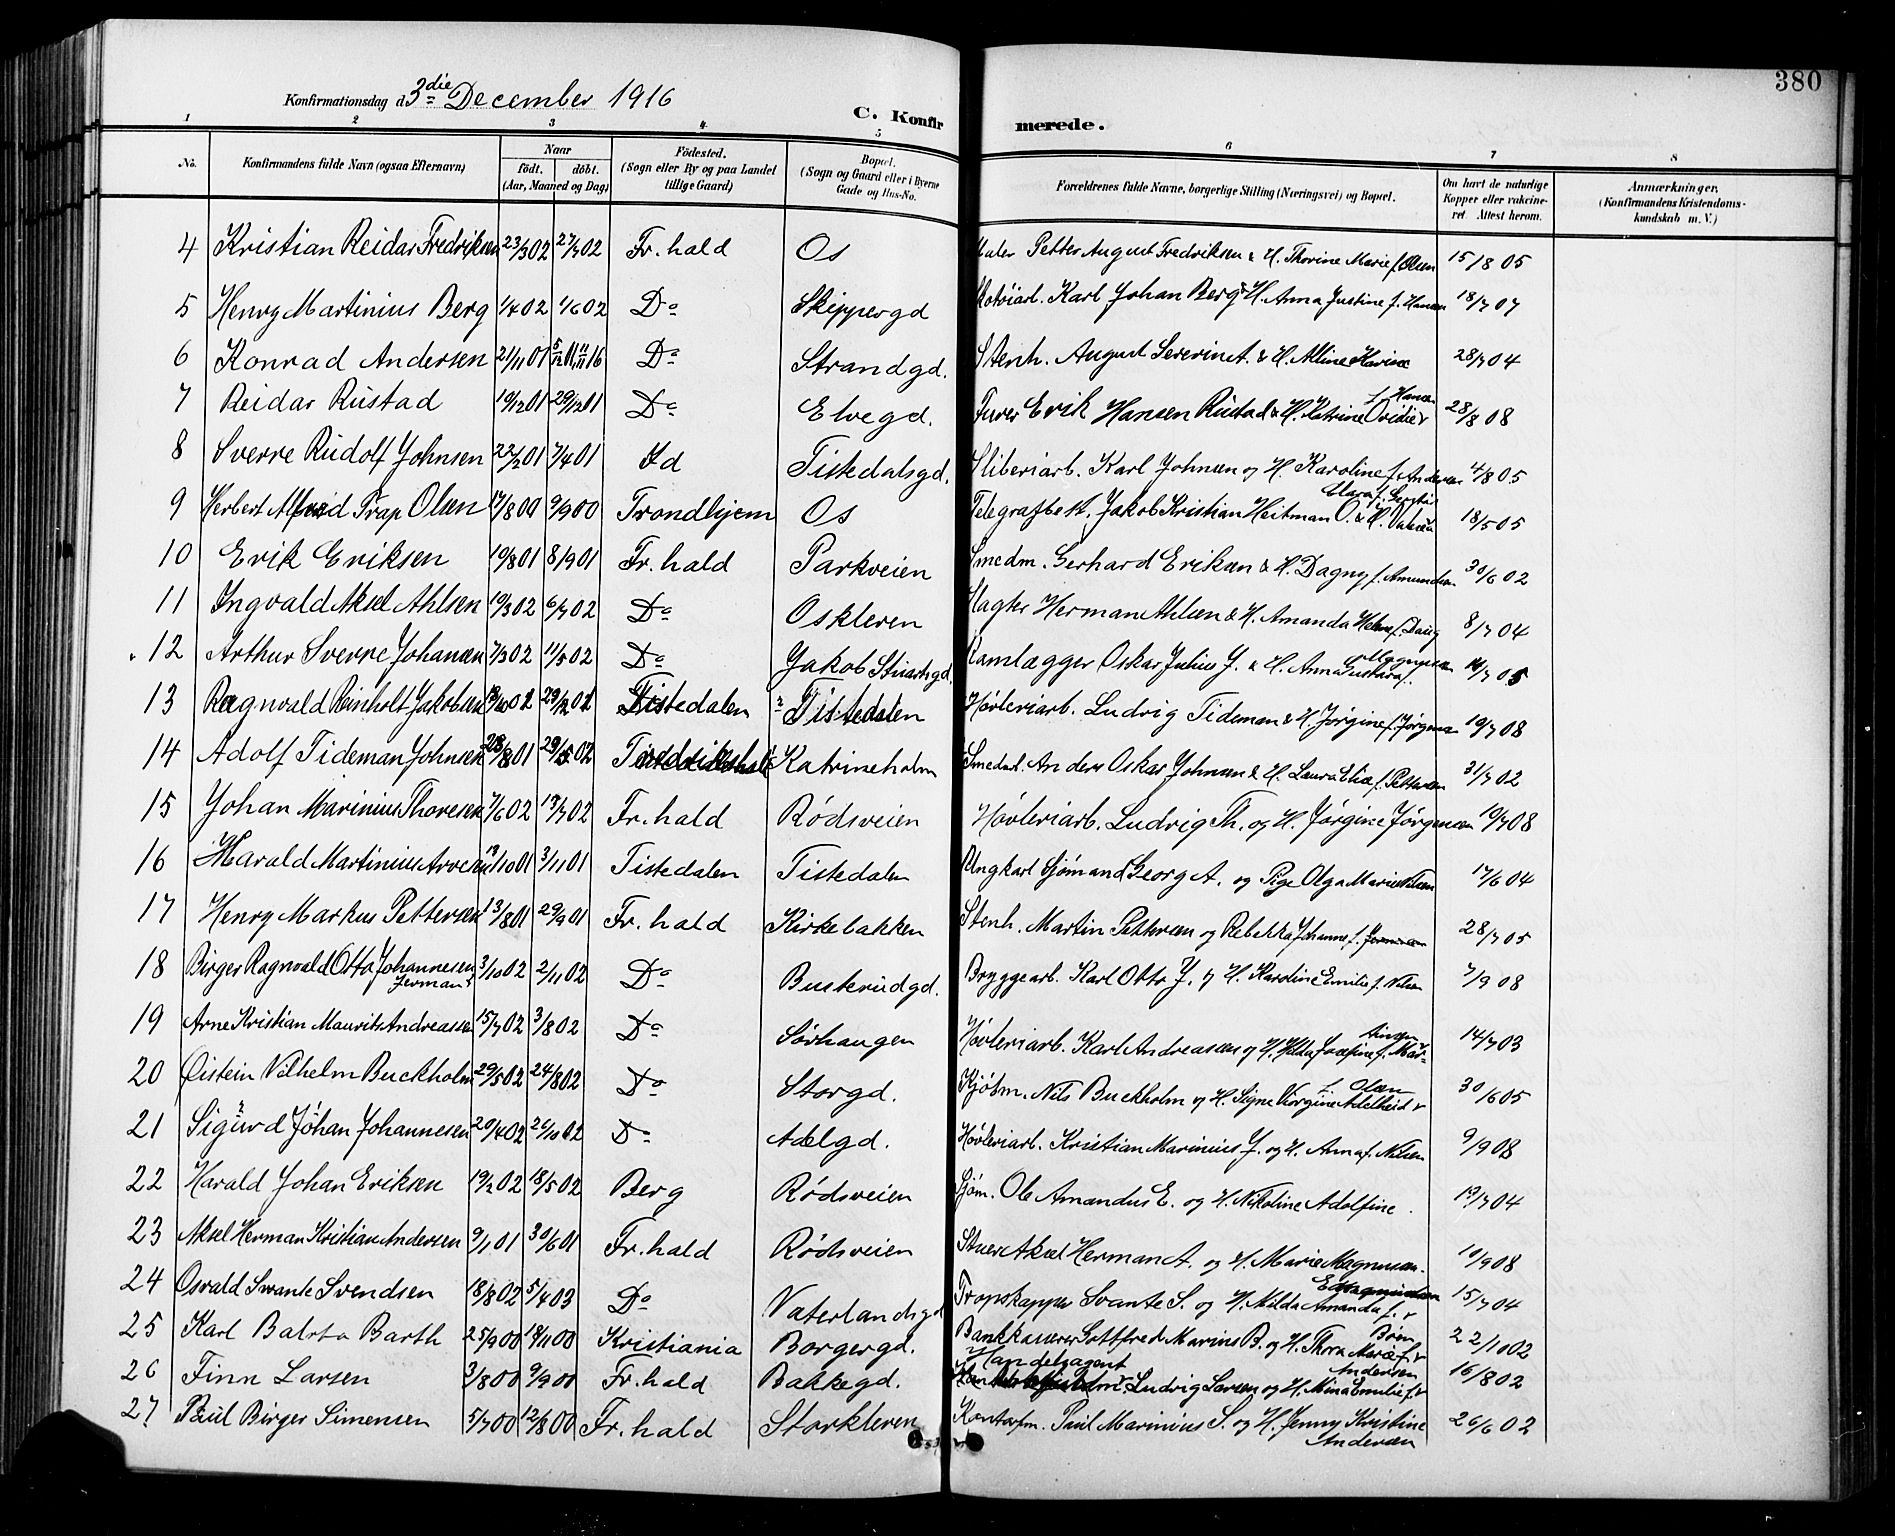 380
Konfirmationsdag d. 3die December 1916
C. Konfirmerede.
1 2 3 4 5 6 7 8
No. Konfirmandens fulde Navn (ogsaa Efternavn) Naar født. døbt. (Aar, Maaned og Dag) Fødested. (Sogn eller By og paa Landet tillige Gaard) Bopæl. (Sogn og Gaard eller i Byerne Gade og Hus-No. Forældrenes fulde Navne, borgerlige Stilling (Næringsvei) og Bopæl. Om havt de naturlige Kopper eller vakcineret. Attest herom. Anmærkninger. (Konfirmandens Kristendomskundskab m. V.)
4 Kristian Reidar Fredriksen 23/3 02 27/7 02 Fr.hald Os Maler Petter August Fredriksen & H. Thorine Marie f. Olsen 15/8 05
5 Henry Martinius Berg 1/4 02 1/6 02 Do Skippergd Karl Johan Berg & H. Anna Justine f. Hansen 18/7 07
6 Konrad Andersen 21/11 01 5/12 01, 11/11 16 Do Strandgd. Stenh. August Severin A. & H. Alline Karine 28/7 04
7 Reidar Rustad 19/12 01 29/12 01 Do Elvegd. Furer Erik Hansen Rustad & H. Katrine Ovidie f. Hansen 28/8 08
8 Sverre Rudolf Johnsen 22/2 01 7/4 01 Id Tistedalsgd. Sliberiarb. Karl Johnsen og H. Karoline f. Andersen 4/8 05
9 Herbert Alfred Trap Olsen 17/8 00 9/9 00 Trondhjem Os Telegrafbest. Jakob Kristian Heitman O. & H. Clara f. 18/5 05
10 Erik Eriksen 19/8 01 8/9 01 Fr.hald Parkveien Smedm. Gerhard Eriksen & H. Dagny f. Amundsen 30/6 02
11 Ingvald Aksel Ahlsen 19/3 02 6/7 02 Do Oskleven Slagter Herman Ahlsen & H. Amanda Helene f. Daug 8/7 04
12 Arthur Sverre Johansen 7/3 02 11/5 02 Do Jakob Stuartsgd. Ramlægger Oskar Julius J. & H. Anna Gustava f. Magnusen 14/7 05
13 Ragnvald Reinholt Jakobsen Tistedalen Tistedalen Høvleriarb. Ludvig Tideman & H. Jørgine f. Jørgensen 19/7 08
14 Adolf Tideman Johnsen 28/8 01 Katrineholm Smedm. Anders Oskar Johnsen & H. Laura Elise f. Pettersen 31/7 02
15 Johan Marinius Thoresen 7/6 02 13/7 02 Fr.hald Rødsveien Høvleriarb. Ludvig Th. og H. Jørgine Jørgensen 19/7 08
16 Harald Martinius Arvesen 13/10 01 3/11 01 Tistedalen Tistedalen Ungkarl Sjømand Georg A. og Pige Olga Marie Nilsen 17/6 04
17 Henry Markus Pettersen 13/8 01 29/9 01 Fr.hald Kirkebakken Stenh. Martin Pettersen og Rebekka Johanne f. 28/7 05
18 Birger Ragnvald Otto Johannesen Jerman 3/10 02 2/11 02 Do Busterudgd. Bryggearb. Karl Otto J. og H. Karoline Emilie f. Nilsen 7/9 08
19 Arne Kristian Maurits Andreassen 15/7 02 3/8 02 Do Sørhaugen Høvleriarb. Karl Andreasen og H. Hilda Josefine f. Martinsen 14/7 03
20 Øistein Vilhelm Buckholm 29/5 02 24/8 02 Do Storgd. Kjøbm. Nils Buckholm og H. Signe Virgine Adelheid f. Olsen 30/6 05
21 Sigurd Johan Johannesen 20/4 02 26/10 02 Do Adelgd. Høvleriarb. Kristian Marinius J. og H. Anna f. Nilsen 9/9 08
22 Harald Johan Eriksen 19/2 02 18/5 02 Berg Rødsveien Sjøm. Ole Amandus E. og H. Nikoline Adolfine. 19/7 04
23 Aksel Herman Kristian Andersen 9/1 01 30/6 01 Fr.hald Rødsveien Stuer Aksel Herman A. og H. Marie Magnusen. 10/9 08
24 Osvald Svante Svendsen 18/8 02 5/4 03 Do Vaterlandsgd Svante S. og H. Milda Amanda f. 15/7 04
25 Karl Balrto Barth 25/9 00 18/11 00 Kristiania Borgergd. Bankkasserer Gottfred Marius B. og H. Thora Marie f. Bøm 22/10 02
26 Finn Larsen 3/8 00 9/9 00 Fr.hald Bakkegd. Handelsagent Ludvig Larsen og H. Mina Emilie f. Andersen 16/8 02
27 Paul Birger Simensen 5/7 00 12/8 00 Fr.hald Storkleven Kontorfm. Paul Marinius S. og H. Jenny Kristine Andersen 26/6 02